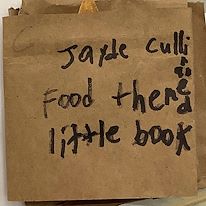 Jayde Culli
Food themed
little book